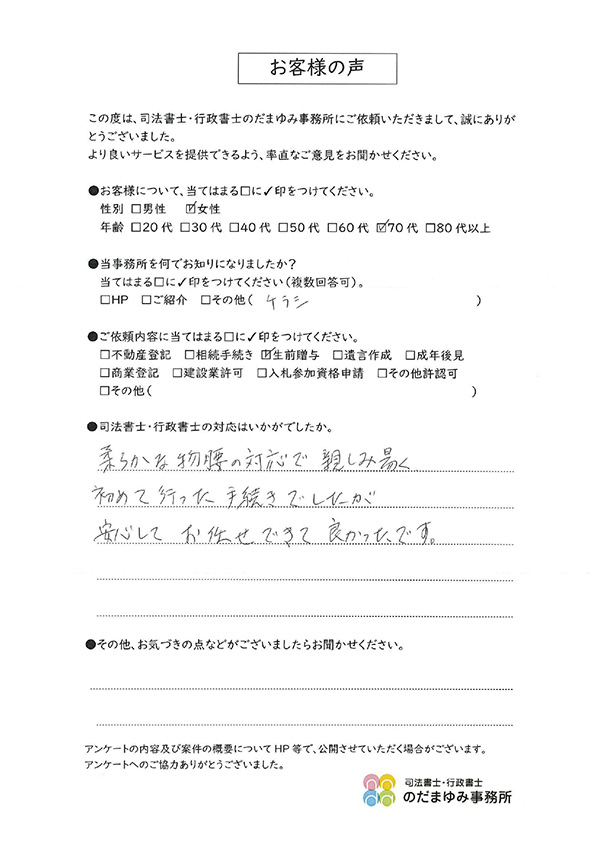 お客様の声
この度は、司法書士・行政書士のだまゆみ事務所にご依頼いただきまして、誠にありが
とうございました。
より良いサービスを提供できるよう、率直なご意見をお聞かせください。
●お客様について、当てはまる□に✓印をつけてください。
性別 □男性 ☑女性
年齢 □20代 □30代 □40代 □50代 □60代 ☑70代 □80代以上
●当事務所を何でお知りになりましたか？
当てはまる□に✓印をつけてください（複数回答可）。
□HP □ご紹介 □その他( チラシ )
●ご依頼内容に当てはまる□に✓印をつけてください。
□不動産登記 □相続手続き ☑生前贈与 □遺言作成 □成年後見
□商業登記 □建設業許可 □入札参加資格申請 □その他許認可
□その他( )
●司法書士・行政書士の対応はいかがでしたか。
柔らかな物腰の対応で 親しみ易く
初めて行った手続きでしたが
安心して お任せできて 良かったです。
●その他、お気づきの点などがございましたらお聞かせください。
アンケートの内容及び案件の概要についてHP等で、公開させていただく場合がございます。
アンケートへのご協力ありがとうございました。
司法書士・行政書士
のだまゆみ事務所